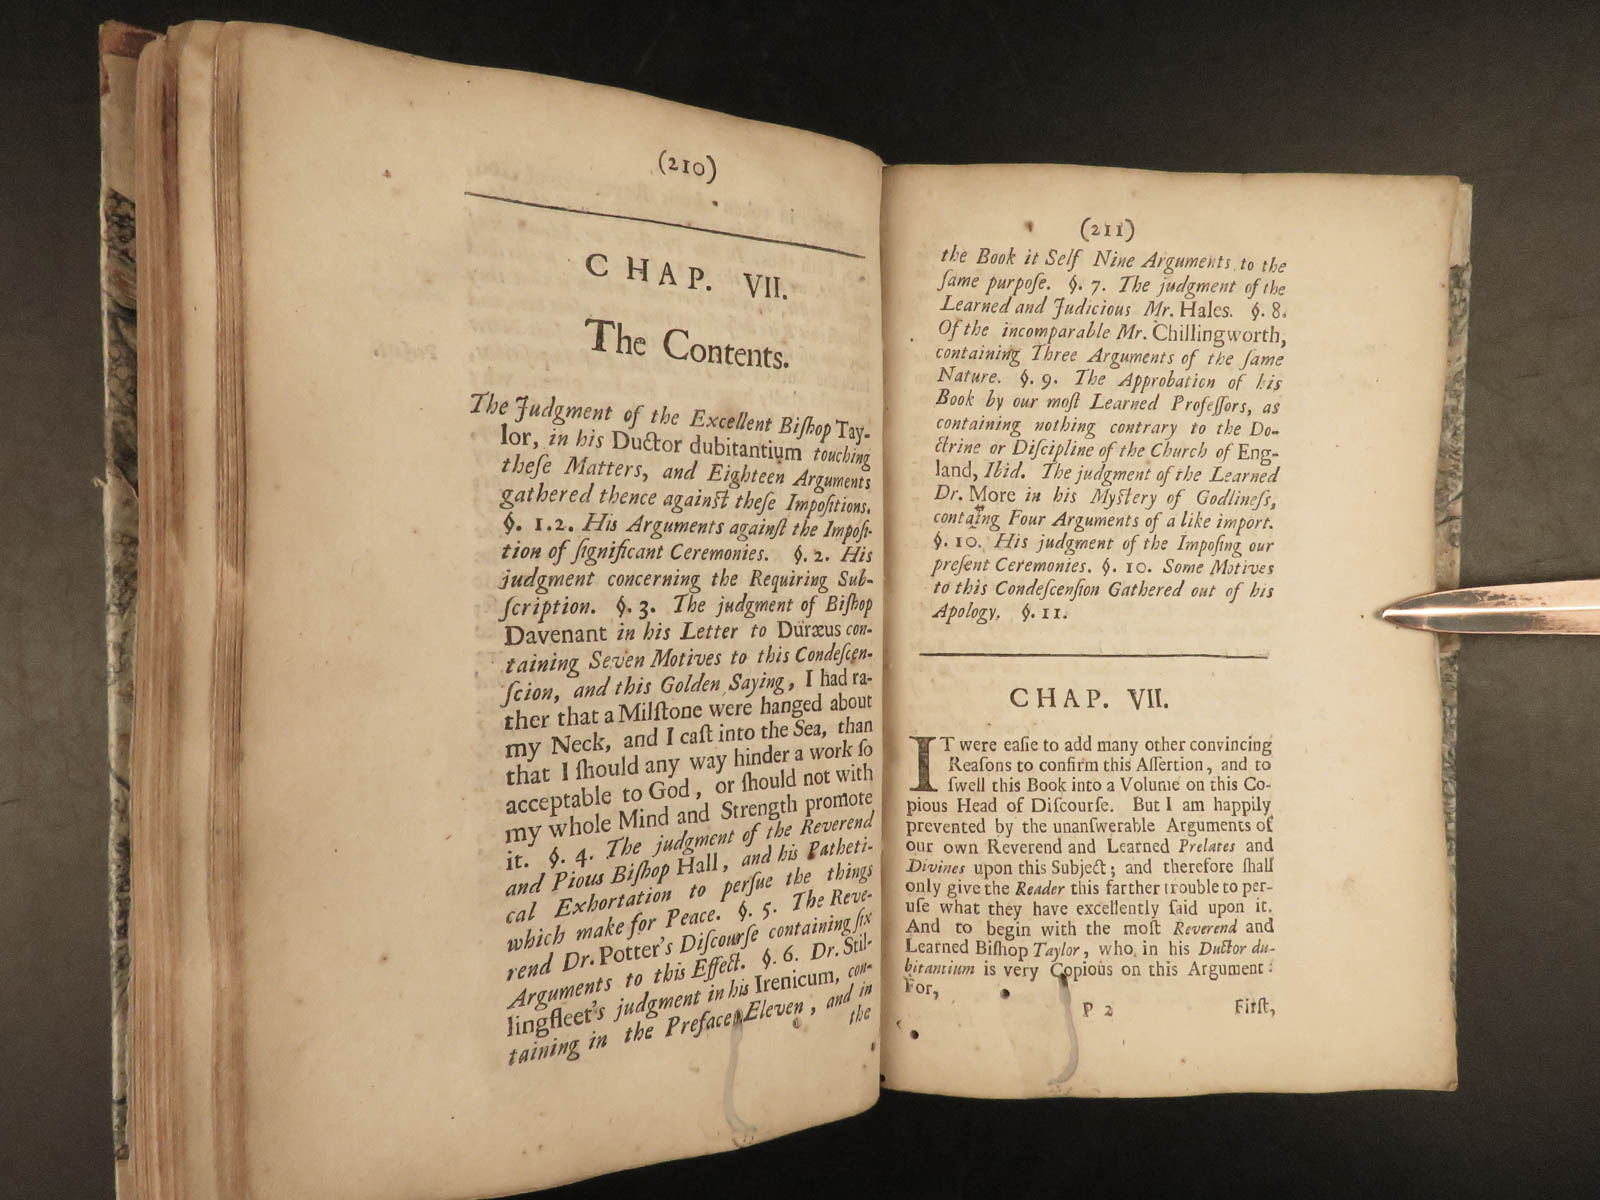 (210)
CHAP. VII.
The Contents.
The Judgment of the Excellent Biſhop Tay-
lor, in his Ductor dubitantium touching
theſe Matters, and Eighteen Arguments
gathered thence againſt theſe Impoſitions.
§. 1.2. His Arguments againſt the Impoſi-
tion of ſignificant Ceremonies. §. 2. His
judgment concerning the Requiring Sub-
ſcription. §. 3. The judgment of Biſhop
Davenant in his Letter to Duræus con-
taining Seven Motives to this Condeſcen-
ſcion, and this Golden Saying, I had ra-
ther that a Milſtone were hanged about
my Neck, and I caſt into the Sea, than
that I ſhould any way hinder a work ſo
acceptable to God, or ſhould not with
my whole Mind and Strength promote
it. §. 4. The judgment of the Reverend
and Pious Biſhop Hall, and his Patheti-
cal Exhortation to perſue the things
which make for Peace. §. 5. The Reve-
rend Dr. Potter's Diſcourſe containing ſix
Arguments to this Effect. §. 6. Dr. Stil-
lingfleet's judgment in his Irenicum, con-
taining in the Preface Eleven, and in
the
(211)
the Book it Self Nine Arguments to the
ſame purpoſe. §. 7. The judgment of the
Learned and Judicious Mr. Hales. §. 8.
Of the incomparable Mr. Chillingworth,
containing Three Arguments of the ſame
Nature. §. 9. The Approbation of his
Book by our moſt Learned Profeſſors, as
containing nothing contrary to the Do-
ctrine or Diſcipline of the Church of Eng-
land, Ibid. The judgment of the Learned
Dr. More in his Myſtery of Godlineſs,
containg Four Arguments of a like import.
§. 10. His judgment of the Impoſing our
preſent Ceremonies. §. 10. Some Motives
to this Condeſcenſion Gathered out of his
Apology. §. 11.
CHAP. VII.
IT were eaſie to add many other convincing
Reaſons to confirm this Aſſertion, and to
ſwell this Book into a Volume on this Co-
pious Head of Diſcourſe. But I am happily
prevented by the unanſwerable Arguments of
our own Reverend and Learned Prelates and
Divines upon this Subject; and therefore ſhall
only give the Reader this farther trouble to per-
uſe what they have excellently ſaid upon it.
And to begin with the moſt Reverend and
Learned Biſhop Taylor, who in his Ductor du-
bitantium is very Copious on this Argument:
For,
P 2 Firſt,